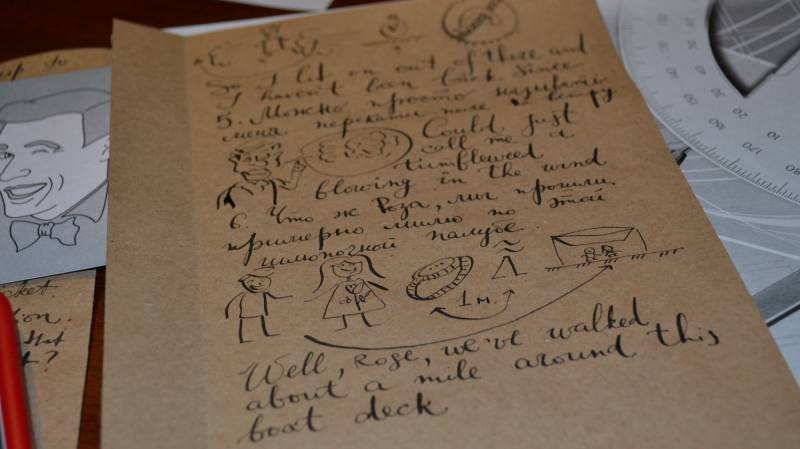 So I lit on out of there and
I haven't been back since
5. Можно просто называть
меня перекати поле на ветру
Could just
call me a
tumbleweed
blowing in the wind
6. Что ж Роза, мы прошли
примерно милю по этой
шлюпочной палубе
1 м.
Well, Rose, we've walked
about a mile around this
boat deck
up to
cket.
tion.
that
t?
20
10